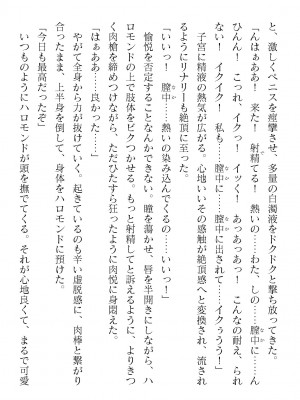 と、激しくペニスを痙攣させ、多量の白濁液をドクドクと撃ち放ってきた。
「んはぁああ！　来た！　射精てる！　熱いの……わた、しの……膣中に……
ひんん！　こっれ、イクっ……イッ！　あっあっあっ！　こんなの耐え、られ
ない！　イクイク！　私も……膣中に出されて……イクぅうう！」
子宮に精液の熱気が広がる。心地いいその感触が絶頂感へと変換され、流され
るようにリナリーも絶頂に至った。
「いいっ！　膣中……熱いの染み込んでくるの……いいっ！」
愉悦を否定することなんかできない。瞳を蕩かせ、唇を半開きにしながら、ハ
ロモンドの上で肢体をビクつかせる。もっと射精してと訴えるように、よりきつ
く肉槍を締めつけながら、ただひたすら狂ったように肉悦に身悶えた。
「はぁああ……良かった……」
やがて全身から力が抜けていく。起きているのも辛い虚脱感に、肉棒と繋がり
合ったまま、上半身を倒して、身体をハロモンドに預けた。
「今日も最高だったぞ」
いつものようにハロモンドが頭を撫でてくる。それが心地良くて、まるで可愛